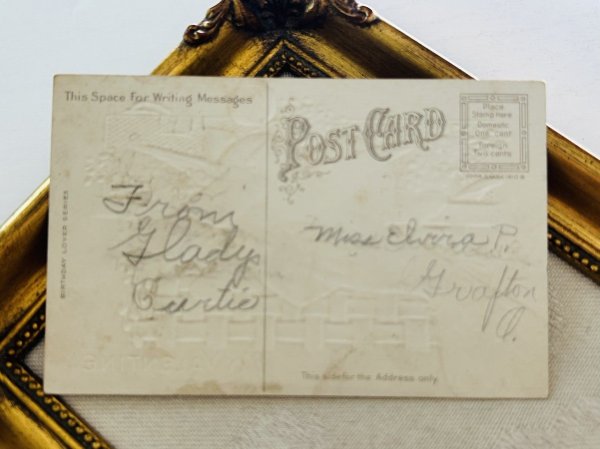 This Space For Writing Messages
POST CARD
Place
Stamp here
Domestic
One cent
Foreign
Two cents
BIRTHDAY LOVER SERIES
From
Gladys
Curtis
Miss Elvira P.
Grafton
O.
This side for the Address only.